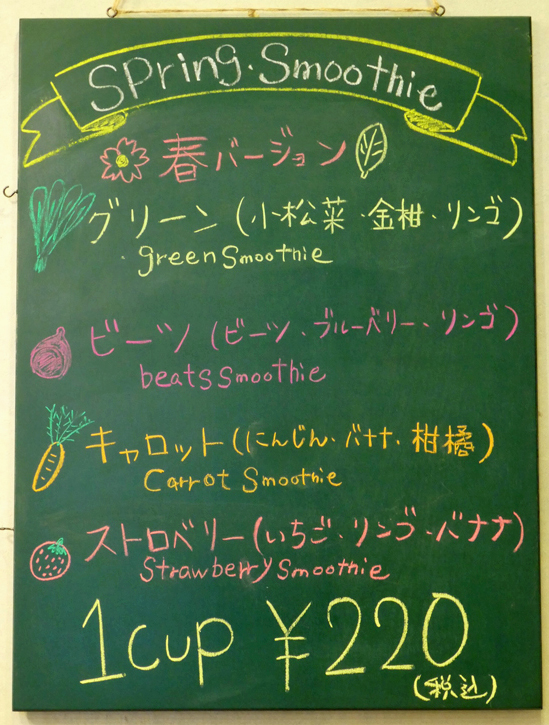 Spring・Smoothie
春バージョン
グリーン(小松菜・金柑・リンゴ)
green Smoothie
ビーツ(ビーツ・ブルーベリー・リンゴ)
beats smoothie
キャロット(にんじん・バナナ・柑橘)
Carrot Smoothie
ストロベリー(いちご・リンゴ・バナナ)
Strawberry Smoothie
1cup ¥220
(税込)